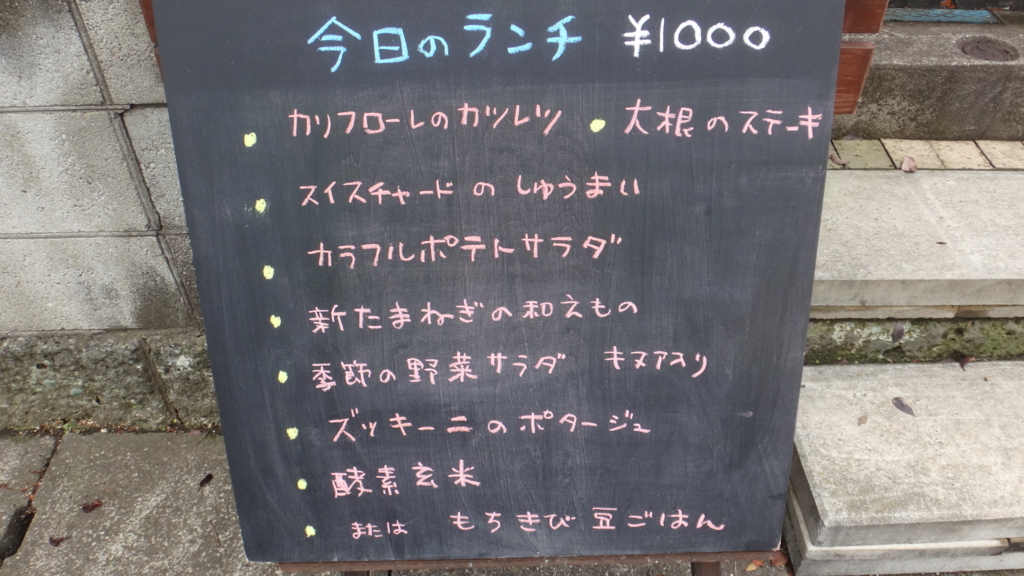 今日のランチ ¥1000
・カリフローレのカツレツ ・大根のステーキ
・スイスチャードのしゅうまい
・カラフルポテトサラダ
・新たまねぎの和えもの
・季節の野菜サラダ キヌア入り
・ズッキーニのポタージュ
・酵素玄米
・または もちきび豆ごはん